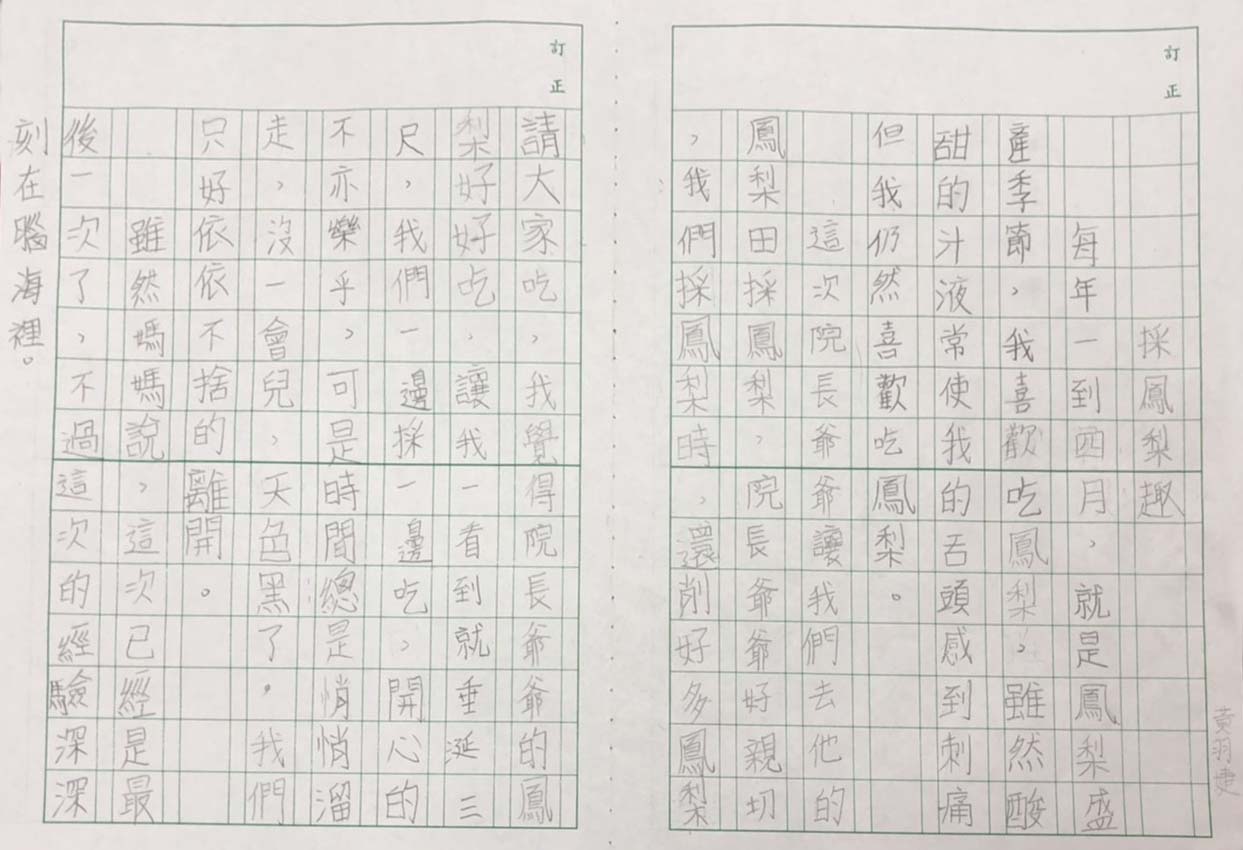 訂正
採鳳梨趣
每年一到四月，就是鳳梨盛
產季節，我喜歡吃鳳梨，雖然酸
甜的汁液常使我的舌頭感到刺痛
但我仍然喜歡吃鳳梨。
這次院長爺爺讓我們去他的
鳳梨田採鳳梨，院長爺爺好親切
，我們採鳳梨時，還削好多鳳梨
訂正
請大家吃，我覺得院長爺爺的鳳
梨好好吃，讓我一看到就垂涎三
尺，我們一邊採一邊吃，開心的
不亦樂乎，可是時間總是悄悄溜
走，沒一會兒，天色黑了，我們
只好依依不捨的離開。
雖然媽媽說，這次已經是最
後一次了，不過這次的經驗深深
刻在腦海裡。